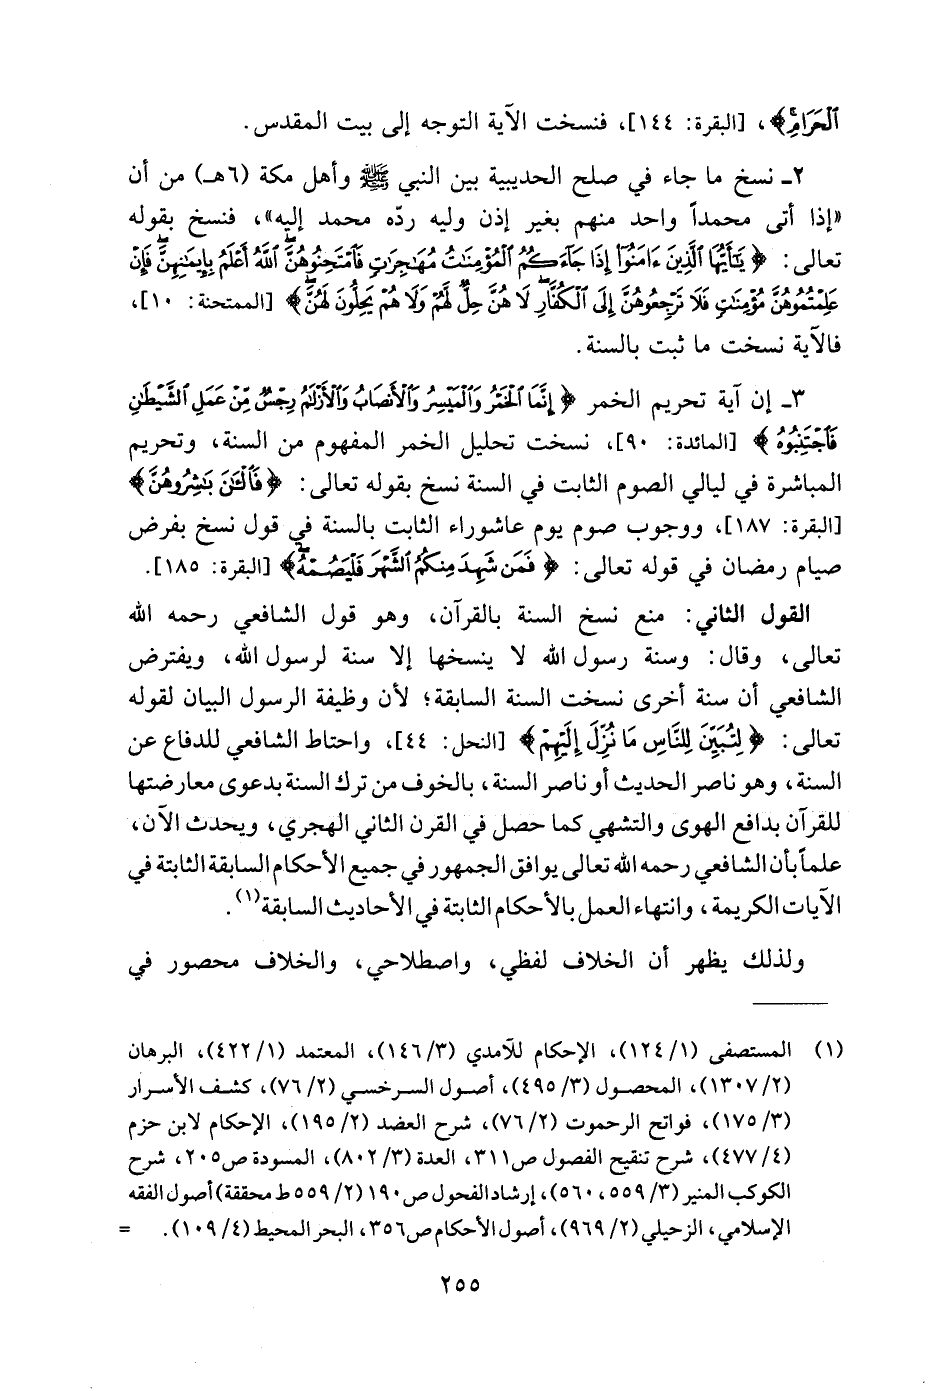 ٱلْحَرَامِۚ﴾، [البقرة: ١٤٤]، فنسخت الآية التوجه إلى بيت المقدس.
٢ـ نسخ ما جاء في صلح الحديبية بين النبي ﷺ وأهل مكة (٦هـ) من أن
«إذا أتى محمداً واحد منهم بغير إذن وليه ردّه محمد إليه»، فنسخ بقوله
تعالى: ﴿يَٰٓأَيُّهَا ٱلَّذِينَ ءَامَنُوٓا۟ إِذَا جَآءَكُمُ ٱلْمُؤْمِنَٰتُ مُهَٰجِرَٰتٍ فَٱمْتَحِنُوهُنَّۖ ٱللَّهُ أَعْلَمُ بِإِيمَٰنِهِنَّۖ فَإِنْ
عَلِمْتُمُوهُنَّ مُؤْمِنَٰتٍ فَلَا تَرْجِعُوهُنَّ إِلَى ٱلْكُفَّارِۖ لَا هُنَّ حِلٌّ لَّهُمْ وَلَا هُمْ يَحِلُّونَ لَهُنَّۖ﴾ [الممتحنة: ١٠]،
فالآية نسخت ما ثبت بالسنة.
٣ـ إن آية تحريم الخمر ﴿إِنَّمَا ٱلْخَمْرُ وَٱلْمَيْسِرُ وَٱلْأَنصَابُ وَٱلْأَزْلَٰمُ رِجْسٌ مِّنْ عَمَلِ ٱلشَّيْطَٰنِ
فَٱجْتَنِبُوهُ﴾ [المائدة: ٩٠]، نسخت تحليل الخمر المفهوم من السنة، وتحريم
المباشرة في ليالي الصوم الثابت في السنة نسخ بقوله تعالى: ﴿فَٱلْـَٰٔنَ بَٰشِرُوهُنَّ﴾
[البقرة: ١٨٧]، ووجوب صوم يوم عاشوراء الثابت بالسنة في قول نسخ بفرض
صيام رمضان في قوله تعالى: ﴿فَمَن شَهِدَ مِنكُمُ ٱلشَّهْرَ فَلْيَصُمْهُۖ﴾ [البقرة: ١٨٥].
القول الثاني: منع نسخ السنة بالقرآن، وهو قول الشافعي رحمه الله
تعالى، وقال: وسنة رسول الله لا ينسخها إلا سنة لرسول الله، ويفترض
الشافعي أن سنة أخرى نسخت السنة السابقة؛ لأن وظيفة الرسول البيان لقوله
تعالى: ﴿لِتُبَيِّنَ لِلنَّاسِ مَا نُزِّلَ إِلَيْهِمْ﴾ [النحل: ٤٤]، واحتاط الشافعي للدفاع عن
السنة، وهو ناصر الحديث أو ناصر السنة، بالخوف من ترك السنة بدعوى معارضتها
للقرآن بدافع الهوى والتشهي كما حصل في القرن الثاني الهجري، ويحدث الآن،
علماً بأن الشافعي رحمه الله تعالى يوافق الجمهور في جميع الأحكام السابقة الثابتة في
الآيات الكريمة، وانتهاء العمل بالأحكام الثابتة في الأحاديث السابقة(١).
ولذلك يظهر أن الخلاف لفظي، واصطلاحي، والخلاف محصور في
(١) المستصفى (١/ ١٢٤)، الإحكام للآمدي (٣/ ١٤٦)، المعتمد (١/ ٤٢٢)، البرهان
(٢/ ١٣٠٧)، المحصول (٣/ ٤٩٥)، أصول السرخسي (٢/ ٧٦)، كشف الأسرار
(٣/ ١٧٥)، فواتح الرحموت (٢/ ٧٦)، شرح العضد (٢/ ١٩٥)، الإحكام لابن حزم
(٤/ ٤٧٧)، شرح تنقيح الفصول ص٣١١، العدة (٣/ ٨٠٢)، المسودة ص٢٠٥، شرح
الكوكب المنير (٣/ ٥٥٩، ٥٦٠)، إرشاد الفحول ص١٩٠ (٢/ ٥٥٩ ط محققة) أصول الفقه
الإسلامي، الزحيلي (٢/ ٩٦٩)، أصول الأحكام ص٣٥٦، البحر المحيط (٤/ ١٠٩). =
٢٥٥